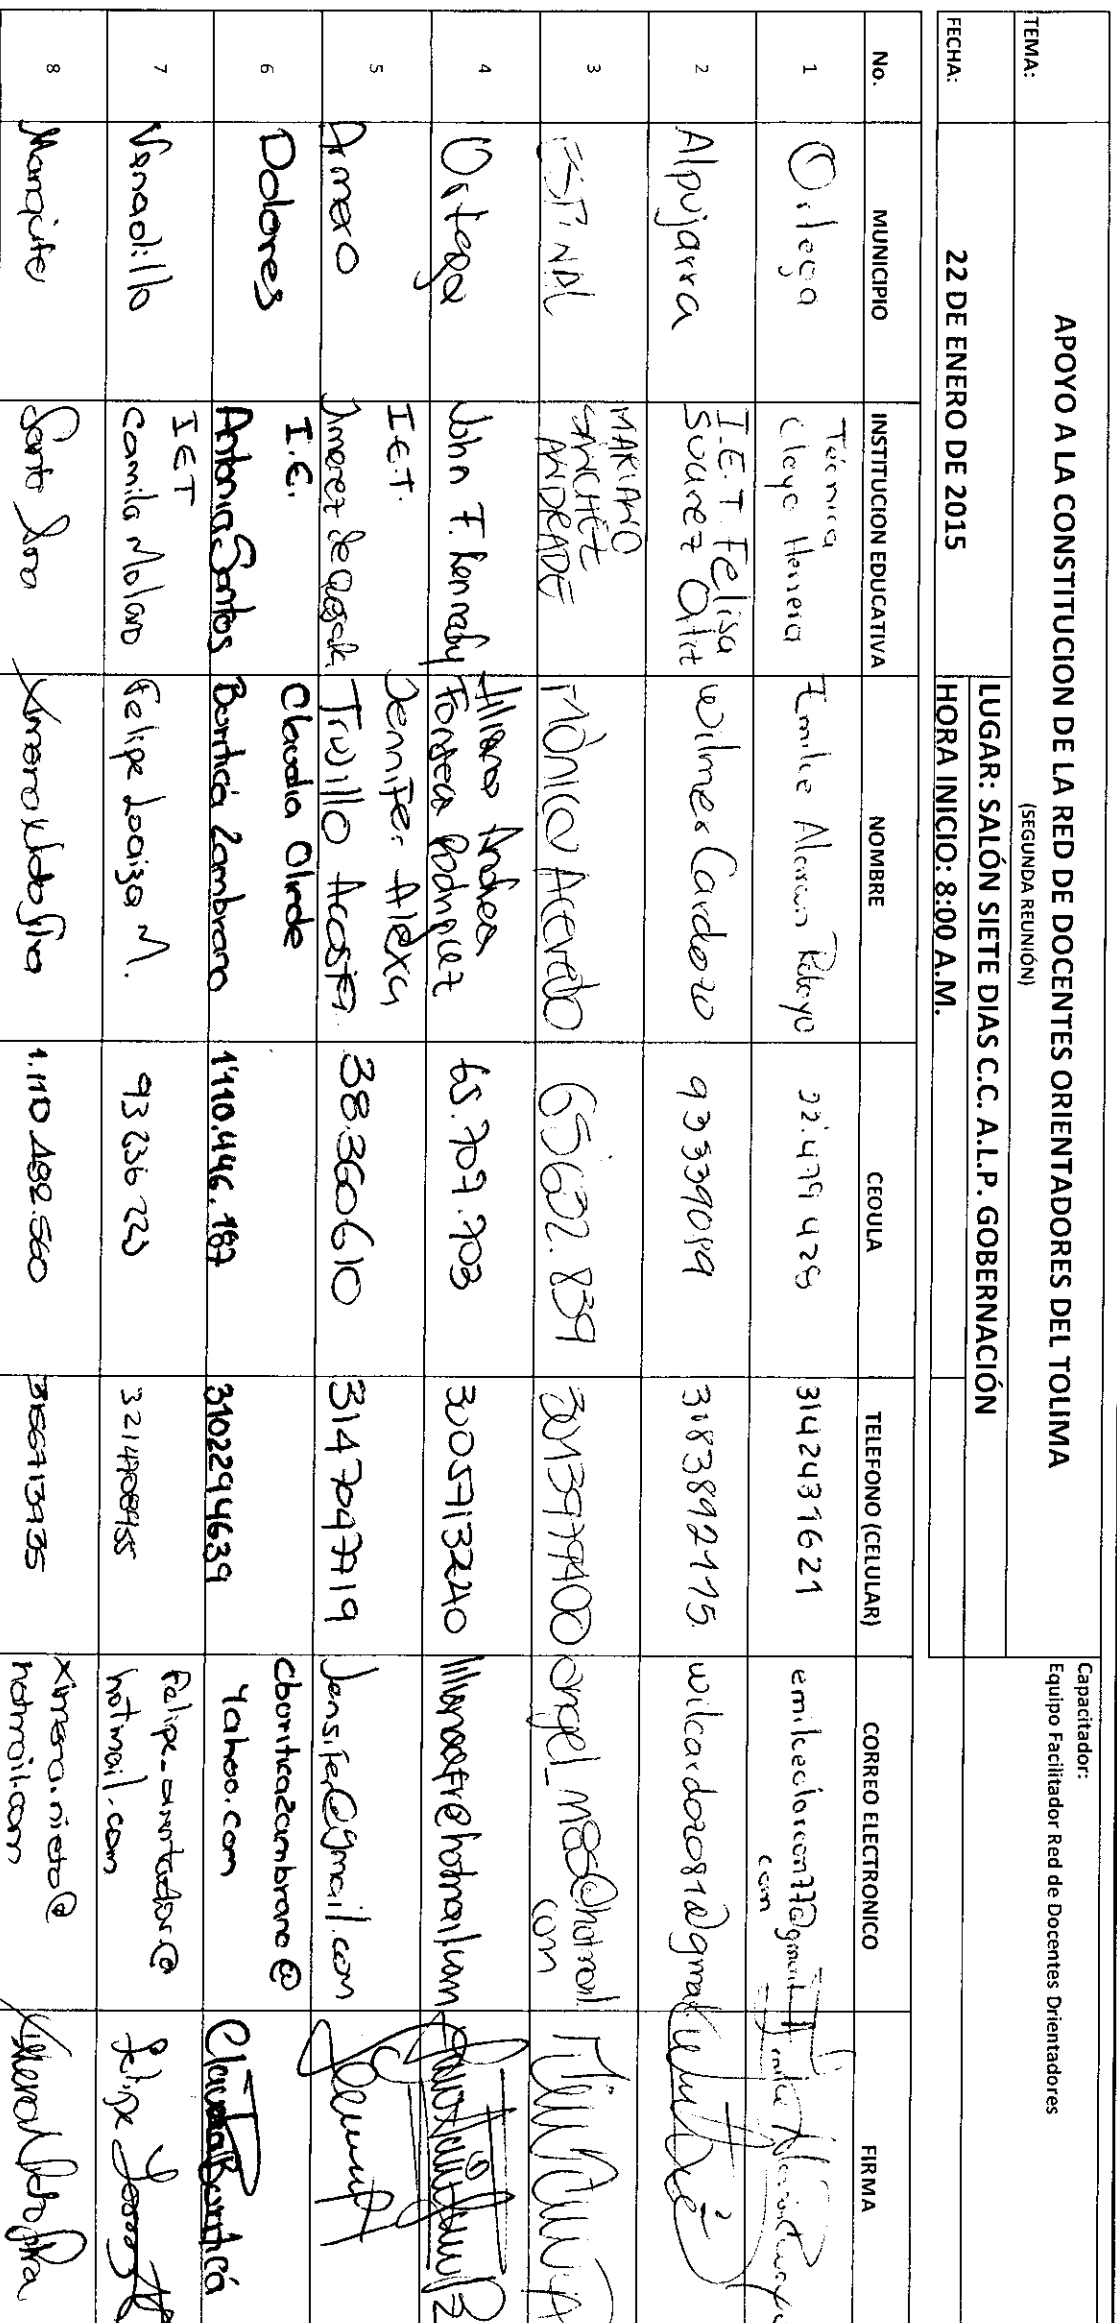 TEMA:
APOYO A LA CONSTITUCION DE LA RED DE DOCENTES ORIENTADORES DEL TOLIMA
(SEGUNDA REUNIÓN)
Capacitador:
Equipo Facilitador Red de Docentes Orientadores
LUGAR: SALÓN SIETE DIAS C.C. A.L.P. GOBERNACIÓN
FECHA: 22 DE ENERO DE 2015 HORA INICIO: 8:00 A.M.
No. MUNICIPIO INSTITUCION EDUCATIVA NOMBRE CEDULA TELEFONO (CELULAR) CORREO ELECTRONICO FIRMA
1 Ortega Técnica Herrera Emilce Alarcon 3142431621
2 Alpujarra I.E.T. Felisa Suarez Wilmer Cardozo 3183892115 wilcardozo81@gmail
3 ESPINAL MARIANO SANCHEZ ANDRADE Mónica Acevedo 65632.839 3013979400 angel_m85@hotmail.com
4 Ortega John F. Kennedy Liliana Andrea Fonseca Rodriguez 65.707.703 3005713240
5 Armero I.E.T. Jimenez de Quesada Jennifer Alexa Trujillo Acosta 38.360610 3147047719 Jensifer@gmail.com
6 Dolores I.E. Antonia Santos Claudia Olinde Boritica Zambrano 1'110.446.187 3102294639 cboriticazambrano@ Yahoo.com Claudia Boritica
7 Venadillo IET Camila Molano Felipe Loaiza M. 93 236 223 felipe_orientador@ hotmail.com Felipe
8 Mariquita Santa Ana 1.110.488.560 ximena.nieto@ hotmail.com